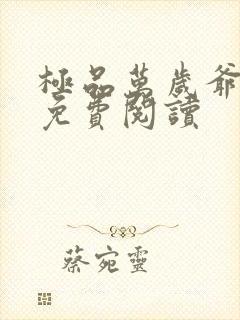 極品萬歲爺
免費閱讀
蔡宛靈